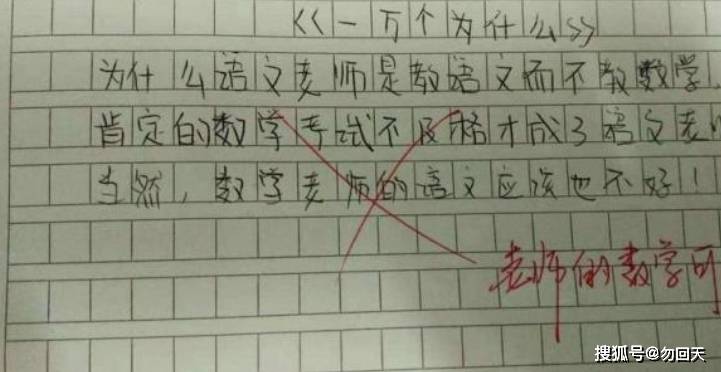 《一万个为什么》
为什么语文老师是教语文而不教数学
肯定的数学考试不及格才成了语文老
当然，数学老师的语文应该也不好！
老师的数学可
搜狐号@勿回天